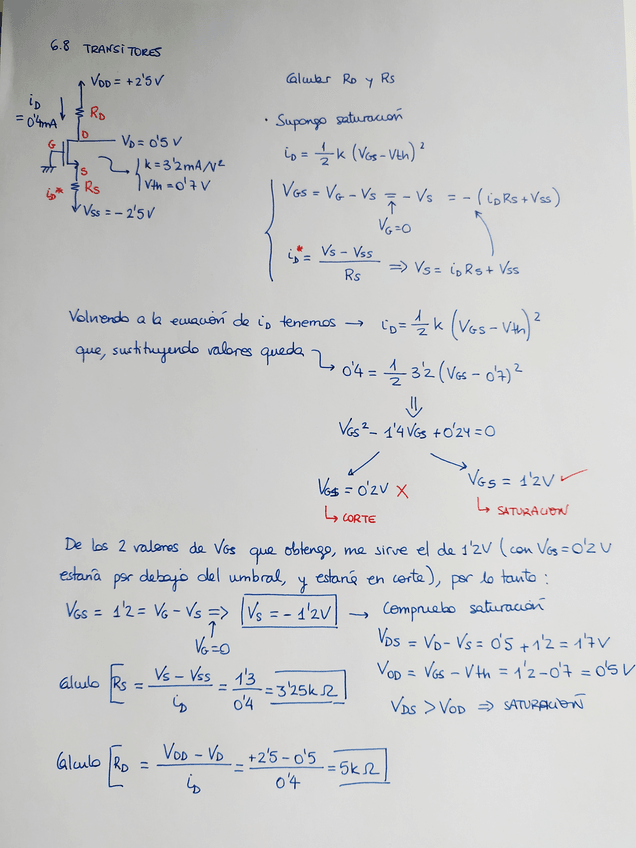 6.8 TRANSITORES
VDD = +2'5V
iD
= 0'4mA
RD
D
VD = 0'5 V
G
k = 3'2 mA/V²
Vth = 0'7 V
S
iD*
RS
VSS = -2'5V
Calcular RD y RS
· Supongo saturación
iD = 1/2 k (VGS - Vth)²
VGS = VG - VS = - VS = - (iD RS + VSS)
VG=0
iD* = (VS - VSS)/RS ⇒ VS = iD RS + VSS
Volviendo a la ecuación de iD tenemos → iD = 1/2 k (VGS - Vth)²
que, sustituyendo valores queda
0'4 = 1/2 3'2 (VGS - 0'7)²
⇓
VGS² - 1'4 VGS + 0'24 = 0
VGS = 0'2V X
VGS = 1'2V ✓
↳ CORTE
↳ SATURACION
De los 2 valores de VGS que obtengo, me sirve el de 1'2V (con VGS = 0'2 V
estaría por debajo del umbral, y estaría en corte), por lo tanto:
VGS = 1'2 = VG - VS ⇒ VS = - 1'2V → Compruebo saturación
VG=0
VDS = VD - VS = 0'5 + 1'2 = 1'7 V
VOD = VGS - Vth = 1'2 - 0'7 = 0'5 V
VDS > VOD ⇒ SATURACIÓN
Calculo RS = (VS - VSS)/iD = 1'3/0'4 = 3'25k Ω
Calculo RD = (VDD - VD)/iD = (+2'5 - 0'5)/0'4 = 5k Ω